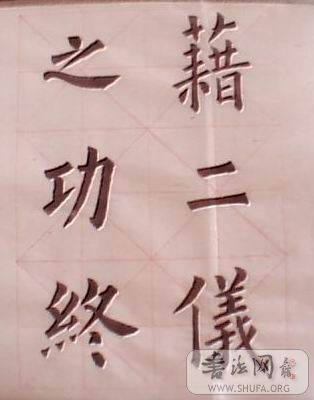 藉二儀
之功終
书法网
WWW.SHUFA.ORG